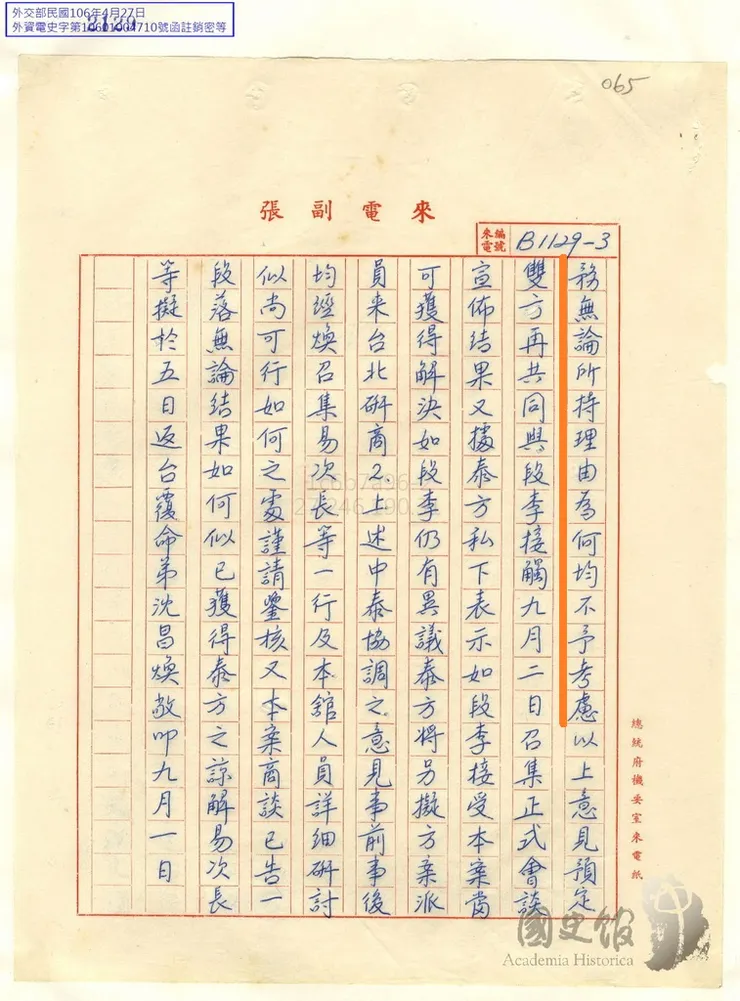 外交部民國106年4月27日
外資電史字第10601004710號函註銷密等
065
來電副張
來電編號 B1129-3
務無論所持理由為何均不予考慮以上意見預定
雙方再共同與段李接觸九月二日召集正式會談
宣佈結果又據泰方私下表示如段李接受本案當
可獲得解決如段李仍有異議泰方將另擬方案派
員來台北研商2.上述中泰協調之意見事前事後
均經煥召集易次長等一行及本館人員詳細研討
似尚可行如何之處謹請鑒核又本案商談已告一
段落無論結果如何似已獲得泰方之諒解易次長
等擬於五日返台覆命弟沈昌煥敬叩九月一日
總統府機要室來電紙
國史館
Academia Historica